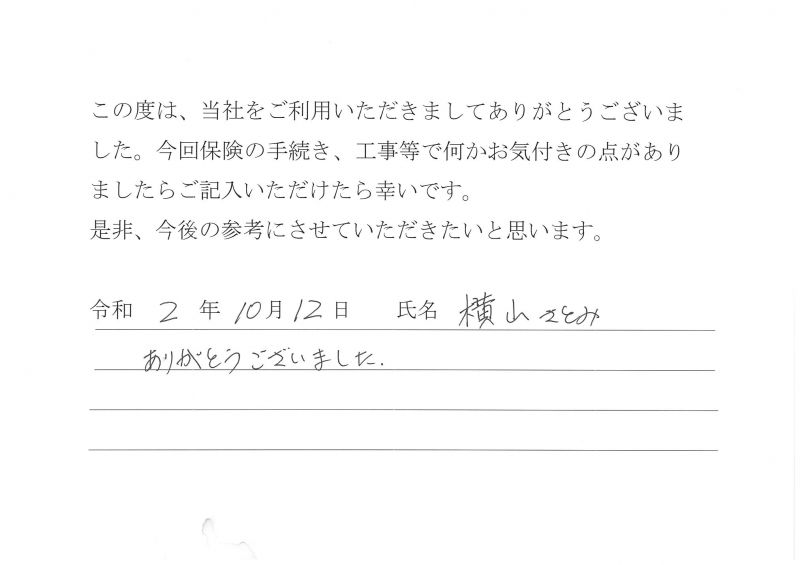 この度は、当社をご利用いただきましてありがとうございま
した。今回保険の手続き、工事等で何かお気付きの点があり
ましたらご記入いただけたら幸いです。
是非、今後の参考にさせていただきたいと思います。
令和 2 年 10月12日 氏名 横山さとみ
ありがとうございました.